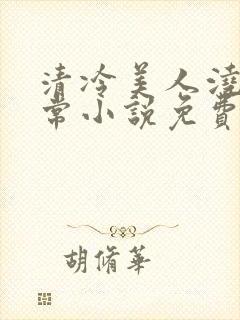 清冷美人澆
常小說免費
胡脩華